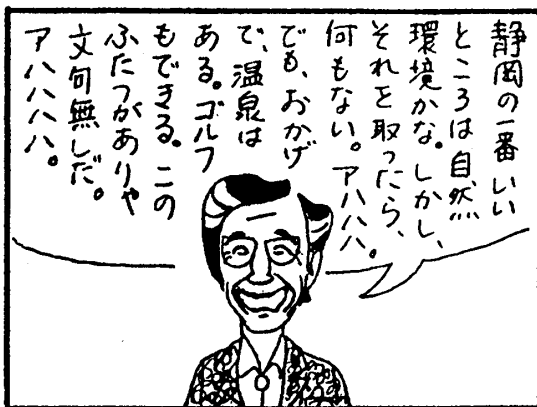 静岡の一番いい
ところは自然
環境かな。しかし、
それを取ったら、
何もない。アハハハ。
でも、おかげ
で、温泉は
ある。ゴルフ
もできる。この
ふたつがありゃ
文句無しだ。
アハハハハ。